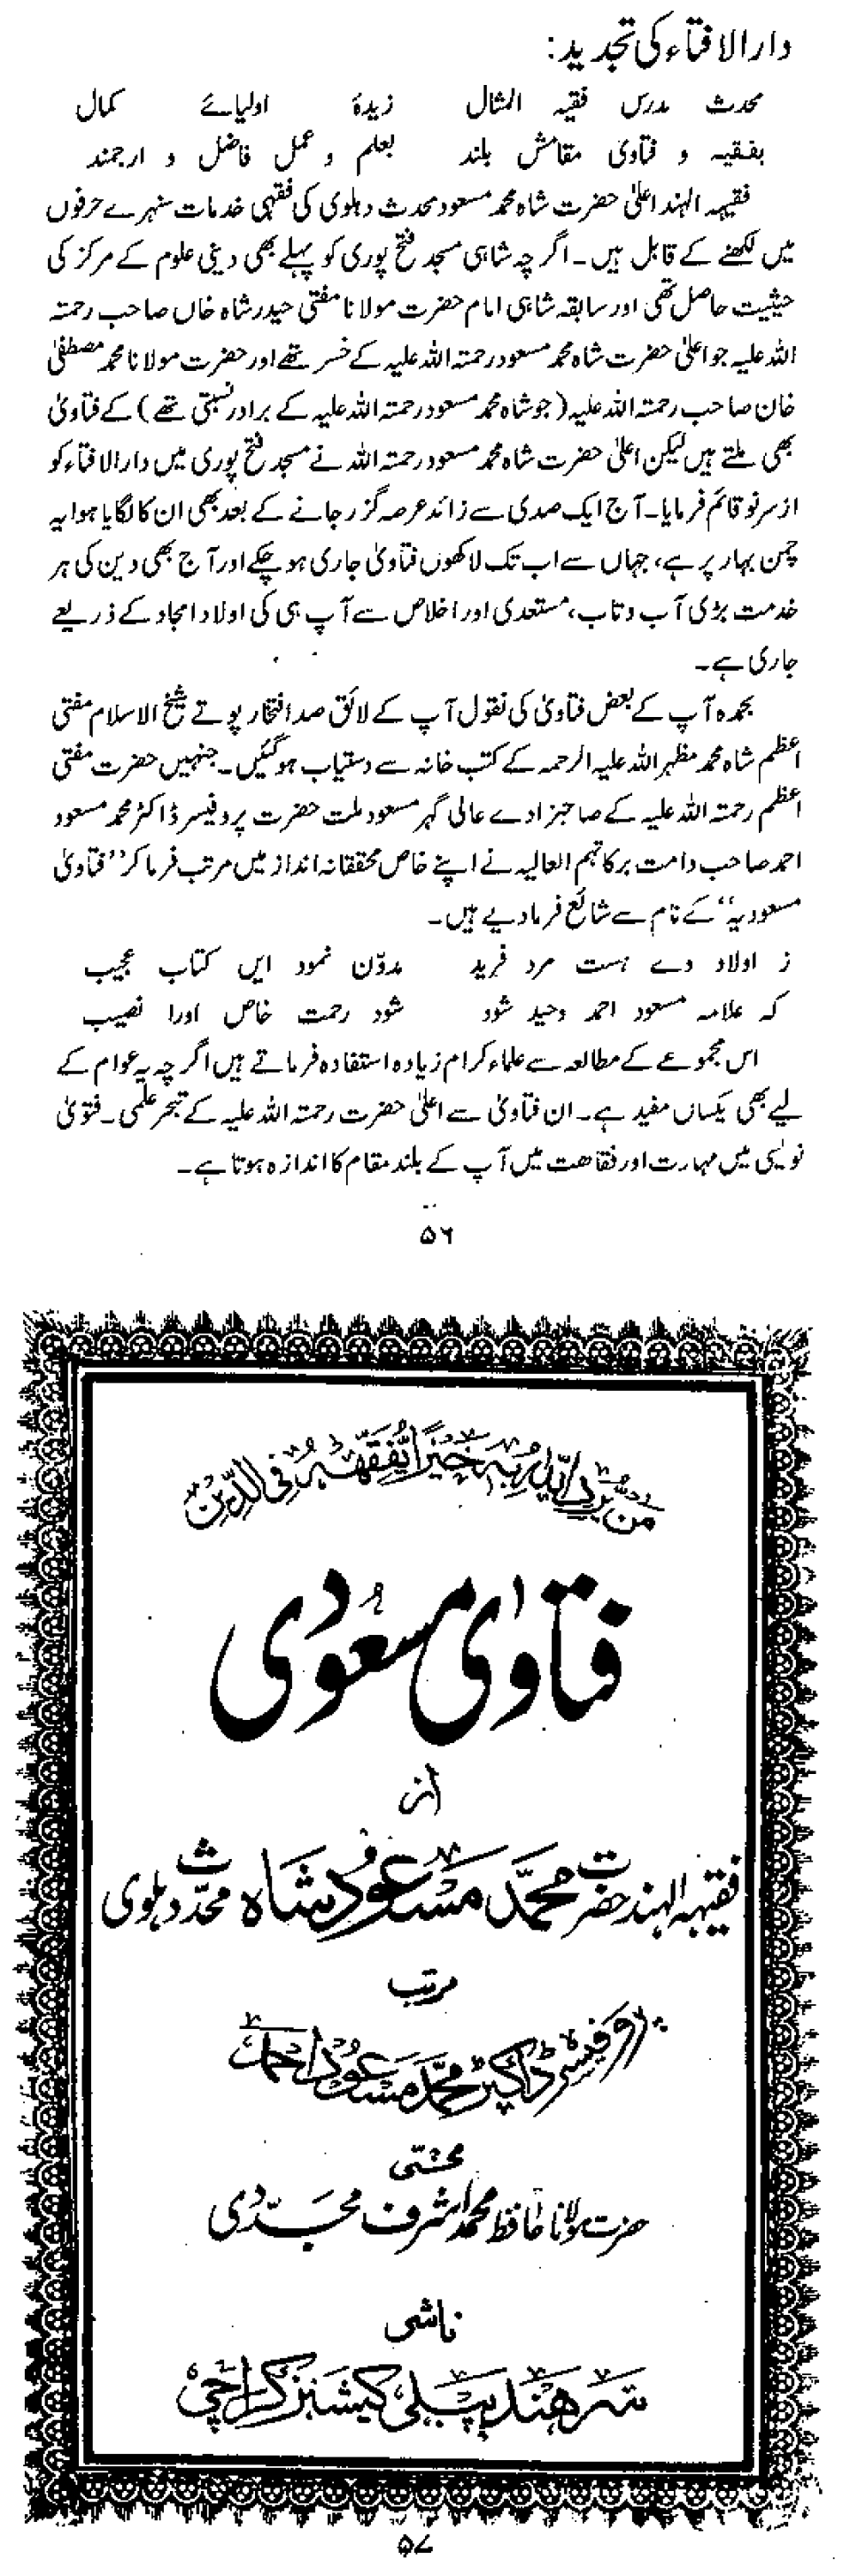 دارالافتاء کی تجدید:
محدث مدرس فقیہ المثال زبدۂ اولیائے کمال
بفقیہ و فتاویٰ مقامش بلند بعلم و عمل فاضل و ارجمند
فقیہہ الہند اعلیٰ حضرت شاہ محمد مسعود محدث دہلوی کی فقہی خدمات سنہرے حرفوں
میں لکھنے کے قابل ہیں۔ اگرچہ شاہی مسجد فتح پوری کو پہلے بھی دینی علوم کے مرکز کی
حیثیت حاصل تھی اور سابقہ شاہی امام حضرت مولانا مفتی حیدر شاہ خاں صاحب رحمتہ
اللہ علیہ جو اعلیٰ حضرت شاہ محمد مسعود رحمتہ اللہ علیہ کے خسر تھے اور حضرت مولانا محمد مصطفیٰ
خان صاحب رحمتہ اللہ علیہ (جو شاہ محمد مسعود رحمتہ اللہ علیہ کے برادر نسبتی تھے) کے فتاویٰ
بھی ملتے ہیں لیکن اعلیٰ حضرت شاہ محمد مسعود رحمتہ اللہ نے مسجد فتح پوری میں دارالافتاء کو
ازسرنو قائم فرمایا۔ آج ایک صدی سے زائد عرصہ گزر جانے کے بعد بھی ان کا لگایا ہوا یہ
چمن بہار پر ہے، جہاں سے اب تک لاکھوں فتاویٰ جاری ہو چکے اور آج بھی دین کی ہر
خدمت بڑی آب و تاب، مستعدی اور اخلاص سے آپ ہی کی اولاد امجاد کے ذریعے
جاری ہے۔
بحمدہ آپ کے بعض فتاویٰ کی نقول آپ کے لائق صد افتخار پوتے شیخ الاسلام مفتی
اعظم شاہ محمد مظہر اللہ علیہ الرحمہ کے کتب خانہ سے دستیاب ہو گئیں۔ جنہیں حضرت مفتی
اعظم رحمتہ اللہ علیہ کے صاحبزادے عالی گہر مسعود ملت حضرت پروفیسر ڈاکٹر محمد مسعود
احمد صاحب دامت برکاتہم العالیہ نے اپنے خاص محققانہ انداز میں مرتب فرما کر ’’فتاویٰ
مسعودیہ‘‘ کے نام سے شائع فرما دیے ہیں۔
ز اولاد دے ہست مرد فرید مدوّن نمود ایں کتاب عجیب
کہ علامہ مسعود احمد وحید شود شود رحمت خاص اورا نصیب
اس مجموعے کے مطالعہ سے علماء کرام زیادہ استفادہ فرماتے ہیں اگرچہ یہ عوام کے
لیے بھی یکساں مفید ہے۔ ان فتاویٰ سے اعلیٰ حضرت رحمتہ اللہ علیہ کے تبحر علمی۔ فتویٰ
نویسی میں مہارت اور فقاہت میں آپ کے بلند مقام کا اندازہ ہوتا ہے۔
۵۶
مَن يُرِدِ اللّٰهُ بِهٖ خَيْرًا يُّفَقِّهْهُ فِي الدِّيْنِ
فتاویٰ مسعودی
از
فقیہہ الہند حضرت محمد مسعود شاہ محدث دہلوی
مرتب
پروفیسر ڈاکٹر محمد مسعود احمد
محشی
حضرت مولانا حافظ محمد اشرف مجددی
ناشر
سرھند پبلی کیشنز کراچی
۵۷